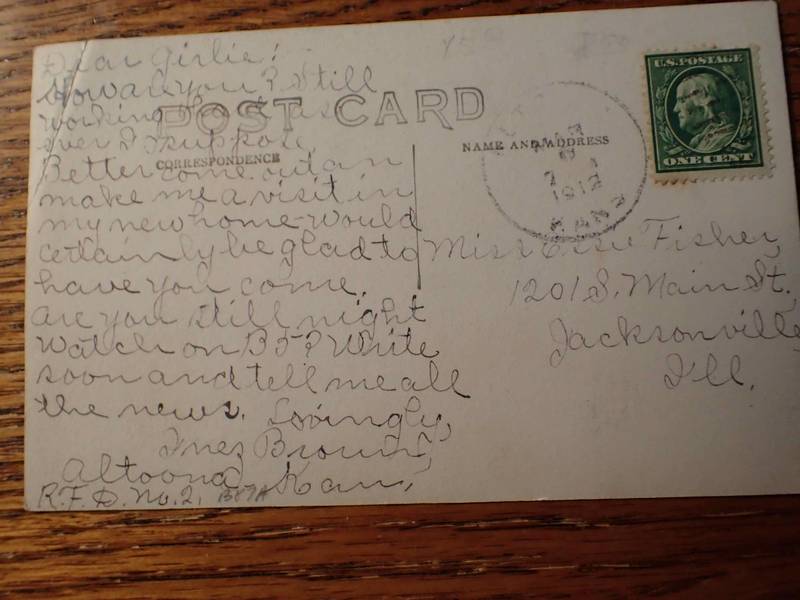 Dear Girlie!
How are you? Still
working hard as
ever I suppose.
Better come out an
make me a visit in
my new home would
certainly be glad to
have you come.
are you still night
watch on B3? Write
soon and tell me all
the news. Lovingly,
Inez Brown,
Altoona, Kans,
R.F.D. No. 2. B87A
POST CARD
CORRESPONDENCE
NAME AND ADDRESS
MAR
1912
KANS
U.S. POSTAGE
ONE CENT
Miss Essie Fisher,
1201 S. Main St.
Jacksonville
Ill.